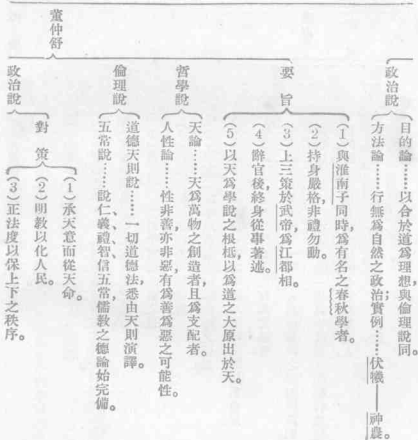 政治說
目的論……以合於道爲理想，與倫理說同。
方法論……行無爲自然之政治，實例……伏犧——神農。
董仲舒
要旨
（1）與淮南子同時爲有名之春秋學者。
（2）持身嚴格，非禮勿動。
（3）上三策於武帝爲江都相。
（4）辭官後終身從事著述。
（5）以天爲學說之根抵，以爲道之大原出於天。
哲學說
天論……天爲萬物之創造者，且爲支配者。
人性論……性非善，亦非惡，有爲善爲惡之可能性。
倫理說
道德天則說……一切道德法悉由天則演繹。
五常說……說仁、義、禮、智、信五常，儒教之德論始完備。
政治說
對策
（1）承天意而從天命。
（2）明教以化人民。
（3）正法度以保上下之秩序。